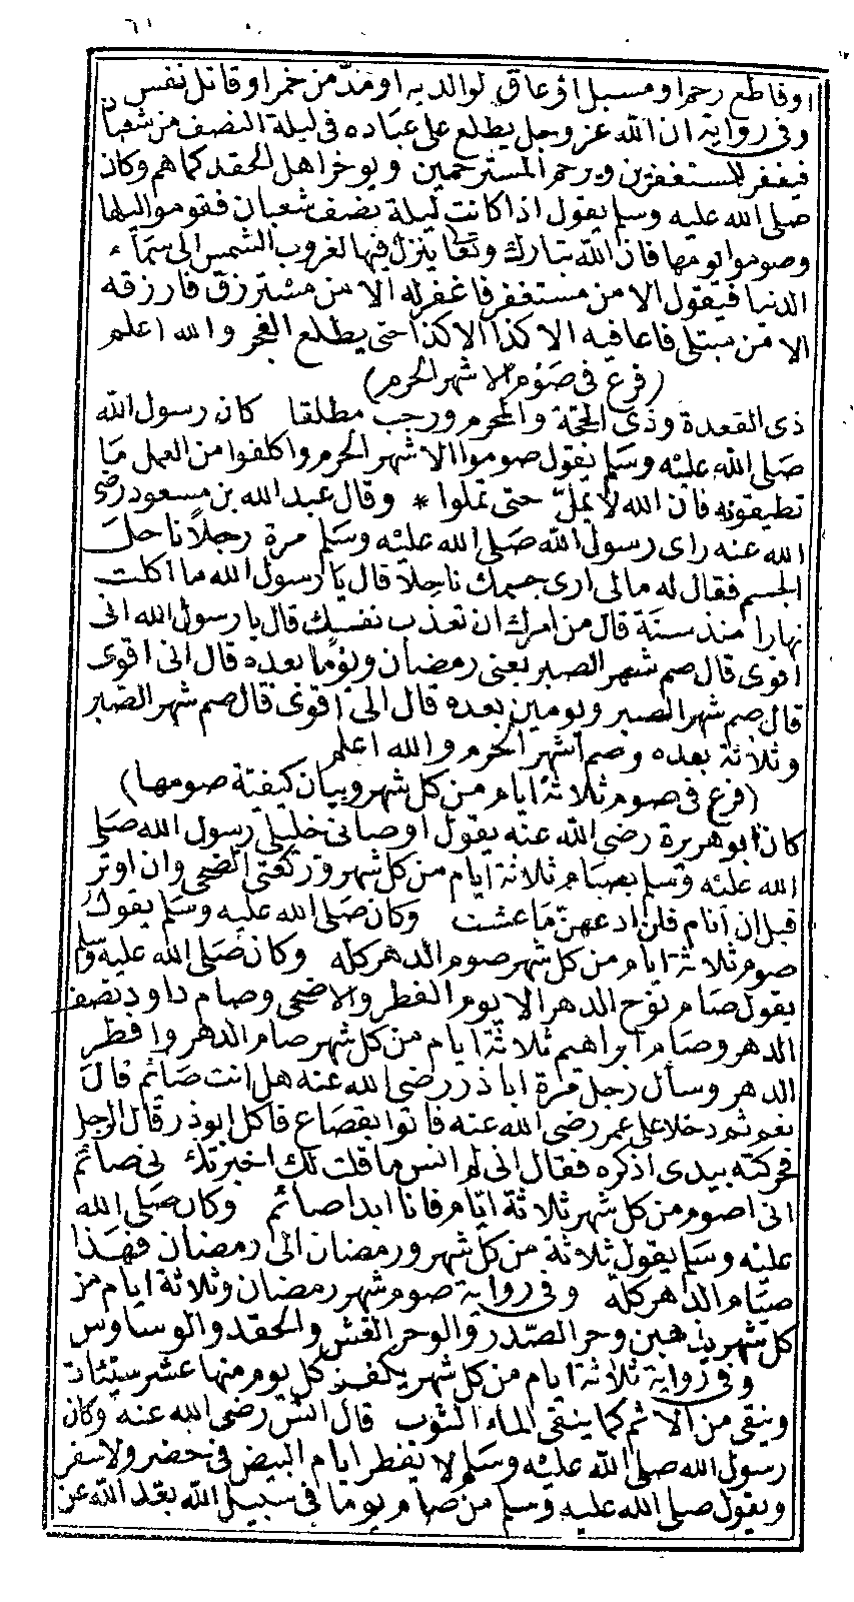 اوقاطع رحم او مسبل او عاق لوالديه او مدمن خمر او قاتل نفس
وفى رواية ان الله عز وجل يطلع على عباده فى ليلة النصف من شعبان
فيغفر للمستغفرين ويرحم المسترحمين ويوخر اهل الحقد كما هم وكان
صلى الله عليه وسلم يقول اذا كانت ليلة نصف شعبان فقوموا ليلها
وصوموا يومها فان الله تبارك وتعالى ينزل فيها لغروب الشمس الى سماء
الدنيا فيقول الا من مستغفر فاغفر له الا من مسترزق فارزقه
الا من مبتلى فاعافيه الا كذا الا كذا حتى يطلع الفجر والله اعلم
(فرع فى صوم الاشهر الحرم)
ذى القعدة وذى الحجة والمحرم ورجب مطلقا كان رسول الله
صلى الله عليه وسلم يقول صوموا الاشهر الحرم واكلفوا من العمل ما
تطيقونه فان الله لا يمل حتى تملوا * وقال عبد الله بن مسعود رضى
الله عنه راى رسول الله صلى الله عليه وسلم مرة رجلا ناحل
الجسم فقال له مالى ارى جسمك ناحلا قال يا رسول الله ما اكلت
نهارا منذ سنة قال من امرك ان تعذب نفسك قال يا رسول الله انى
اقوى قال صم شهر الصبر يعنى رمضان ويوما بعده قال انى اقوى
قال صم شهر الصبر ويومين بعده قال انى اقوى قال صم شهر الصبر
وثلاثة بعده وصم اشهر الحرم والله اعلم
(فرع فى صوم ثلاثة ايام من كل شهر وبيان كيفية صومها)
كان ابو هريرة رضى الله عنه يقول اوصانى خليلى رسول الله صلى
الله عليه وسلم بصيام ثلاثة ايام من كل شهر وركعتى الضحى وان اوتر
قبل ان انام فلن ادعهن ما عشت وكان صلى الله عليه وسلم يقول
صوم ثلاثة ايام من كل شهر صوم الدهر كله وكان صلى الله عليه وسلم
يقول صام نوح الدهر الا يوم الفطر والاضحى وصام داود نصف
الدهر وصام ابراهيم ثلاثة ايام من كل شهر صام الدهر وافطر
الدهر وسأل رجل مرة ابا ذر رضى الله عنه هل انت صائم قال
نعم ثم دخلا على عمر رضى الله عنه فاتوا بقصاع فاكل ابو ذر قال الرجل
فحركته بيدى اذكره فقال انى لم انس ما قلت لك اخبرتك انى صائم
انى اصوم من كل شهر ثلاثة ايام فانا ابدا صائم وكان صلى الله
عليه وسلم يقول ثلاثة من كل شهر ورمضان الى رمضان فهذا
صيام الدهر كله وفى رواية صوم شهر رمضان وثلاثة ايام من
كل شهر يذهبن وحر الصدر والوحر الغش والحقد والوساوس
وفى رواية ثلاثة ايام من كل شهر يكفر كل يوم منها عشر سيئات
وينقى من الاثم كما ينقى الماء الثوب قال انس رضى الله عنه وكان
رسول الله صلى الله عليه وسلم لا يفطر ايام البيض فى حضر ولا سفر
ويقول صلى الله عليه وسلم من صام يوما فى سبيل الله بعد الله عن